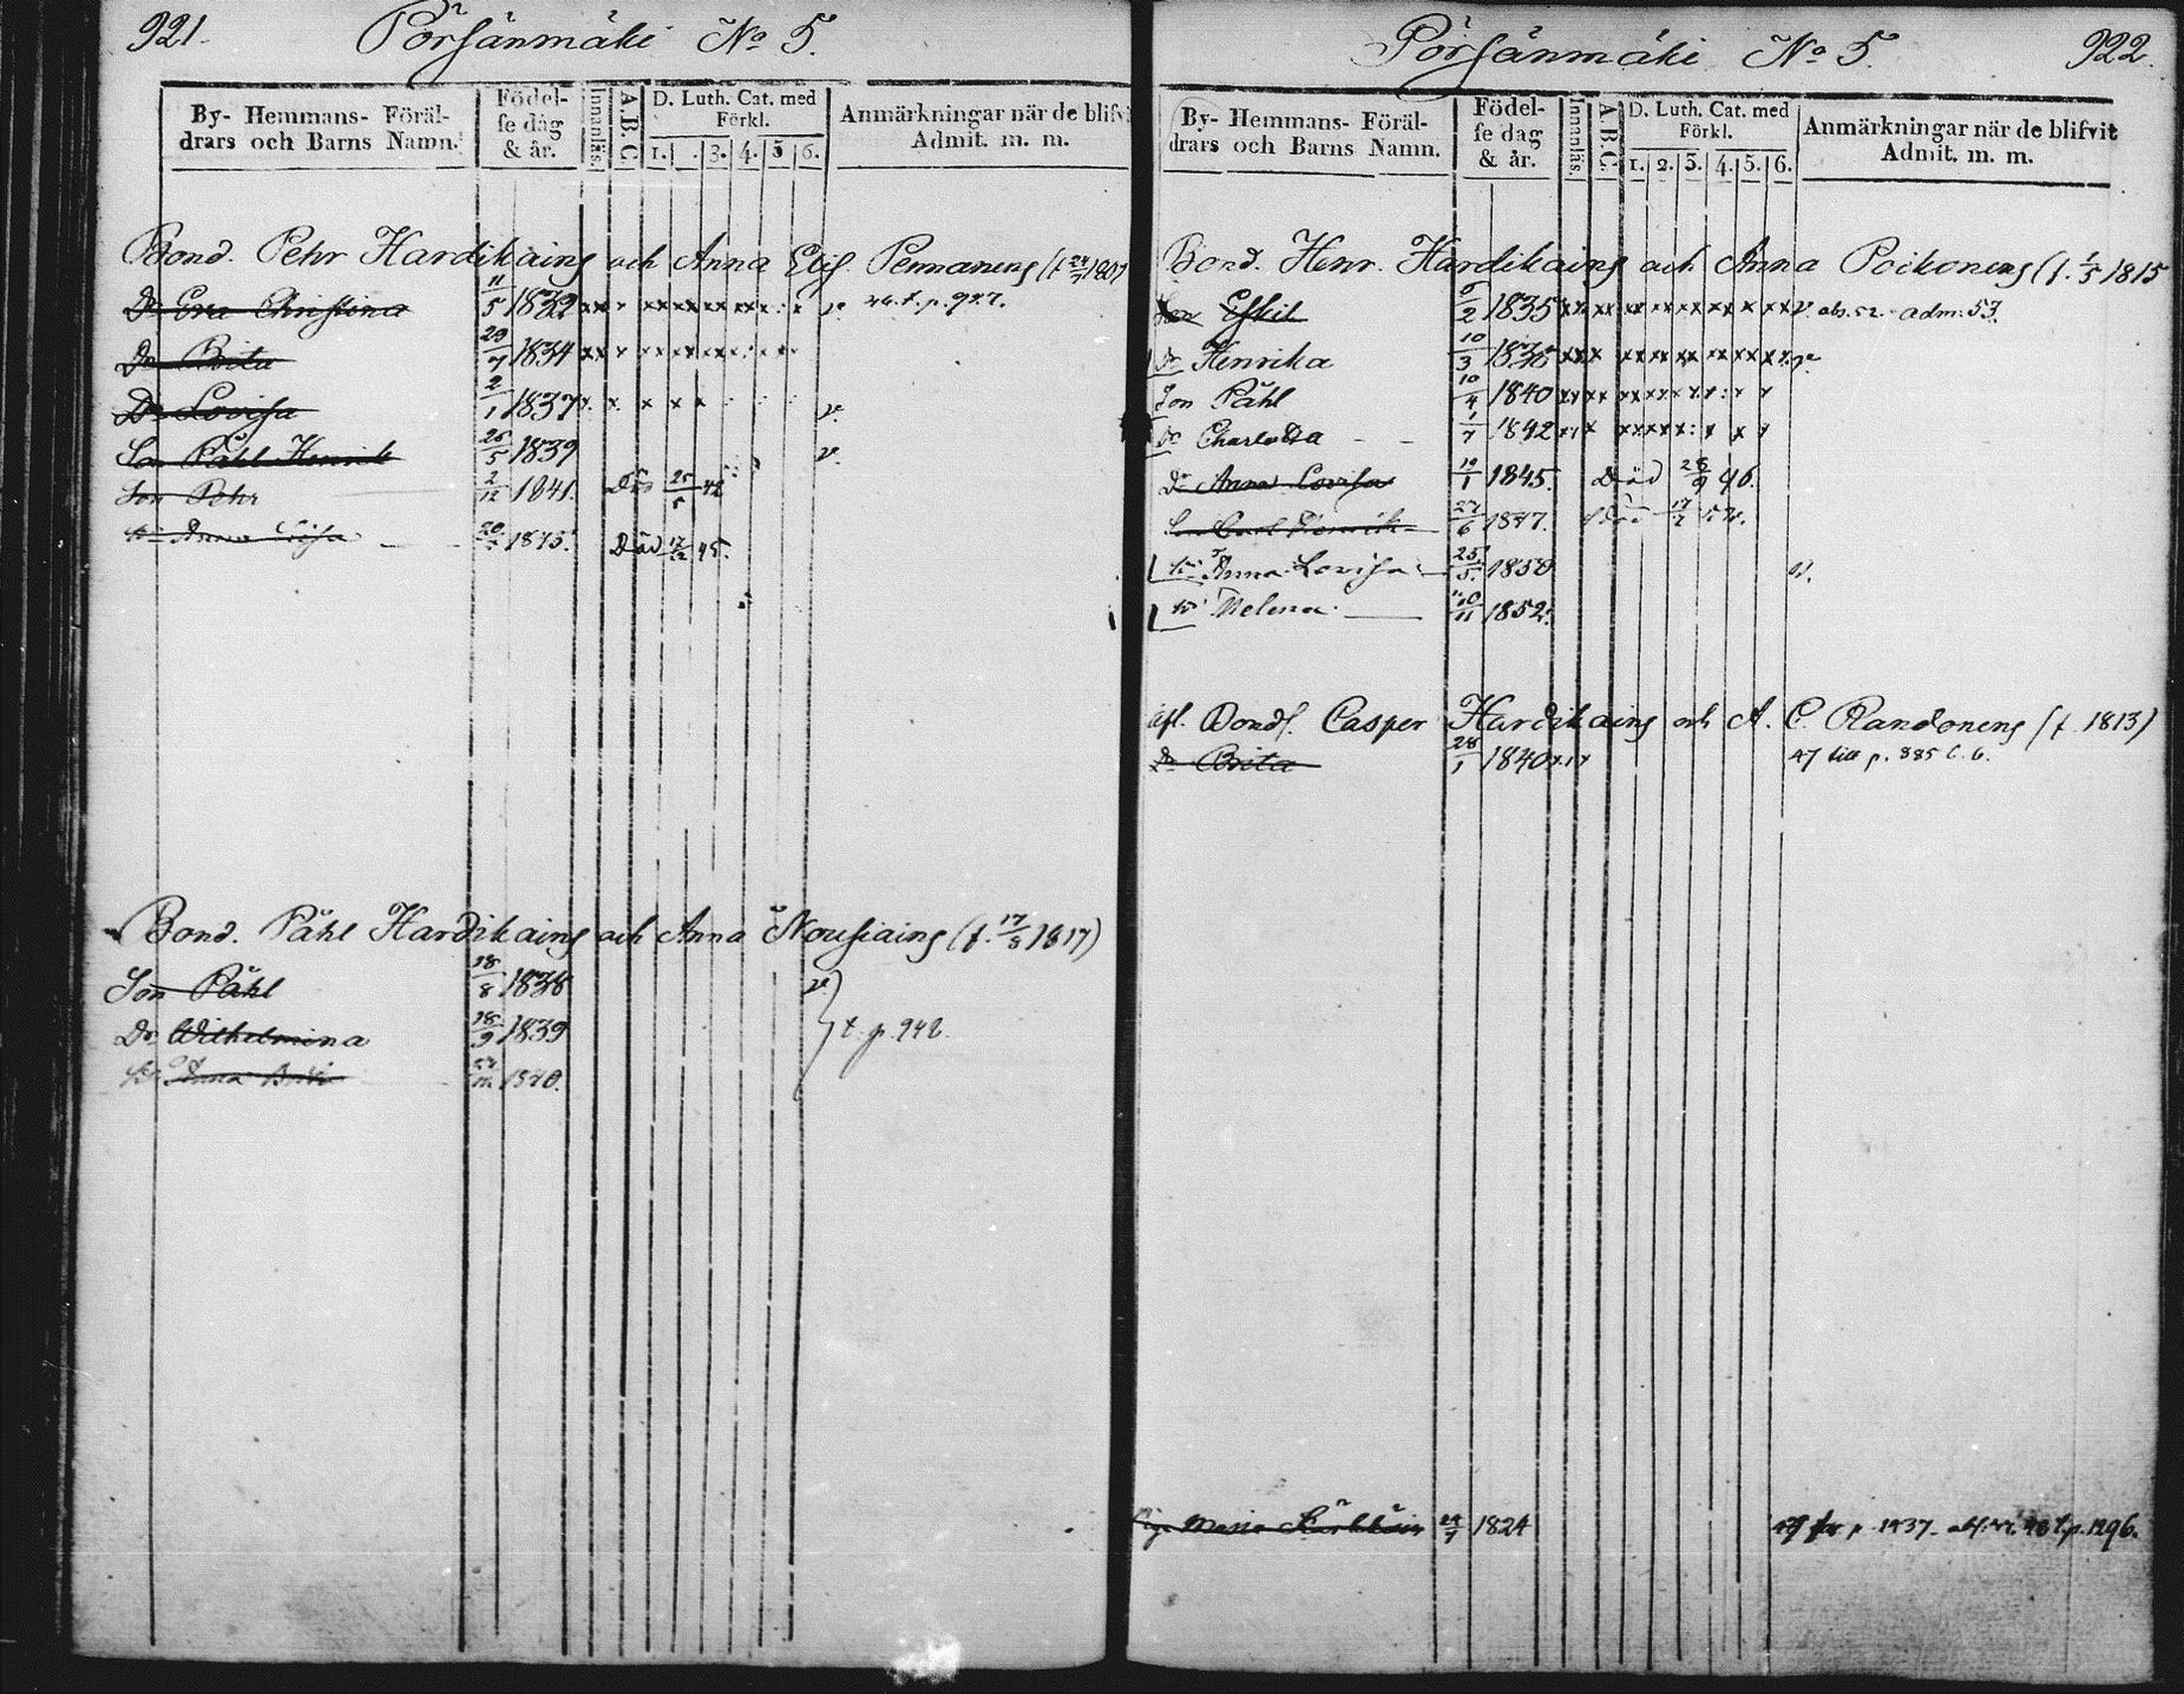 921. Pörsänmäki No 5.
By- Hemmans- Föräl-
drars och Barns Namn.
Födel-
se dag
& år.
Innanläs.
A.B.C.
D. Luth. Cat. med
Förkl.
1. 3. 4. 5 6.
Anmärkningar när de blifvi
Admit. m. m.
Bond. Pehr Hardikains och Anna Elis. Pennanens (f. 24/7 1807
Dr Eva Christina 11/5 1832 v. 46. t. p. 927.
Dr Brita 29/7 1834
Dr Lovisa 2/1 1837 v.
Son Påhl Henrik 26/5 1839 v.
Son Pehr 2/12 1841. Död 25/5 42
Dr Anna Lisa 1845. Död 17/12 45.
Bond. Påhl Hardikains och Anna Nousiains (f. 17/8 1817)
Son Påhl 18/8 1838 v.
Dr Wilhelmina 18/9 1839 t. p. 942.
Dr Anna Brita 1840.
Pörsänmäki No 5. 922.
By- Hemmans- Föräl-
drars och Barns Namn.
Födel-
se dag
& år.
Innanläs.
A.B.C.
D. Luth. Cat. med
Förkl.
1. 2. 3. 4. 5. 6.
Anmärkningar när de blifvit
Admit. m. m.
Bond. Henr. Hardikains och Anna Poikonens (f. 1/5 1815
Son Eskil 6/2 1835 v. abs. 52. adm: 53.
Dr Henrika 10/3 1838 v.
Son Påhl 10/4 1840
Dr Charlotta 1/7 1842
Dr Anna Lovisa 10/1 1845. Död 28/9 46.
Son Carl Henrik 27/6 1847. Död 17/2 52.
Dr Anna Lovisa 25/5. 1850 v.
Dr Helena 10/11 1852.
afl. Bonds. Casper Hardikains och A. C. Randonens (f. 1813)
Dr Brita 28/1 1840 47 till p. 885 C. 6.
Maria 24/7 1824 p. 1437. p. 1296.